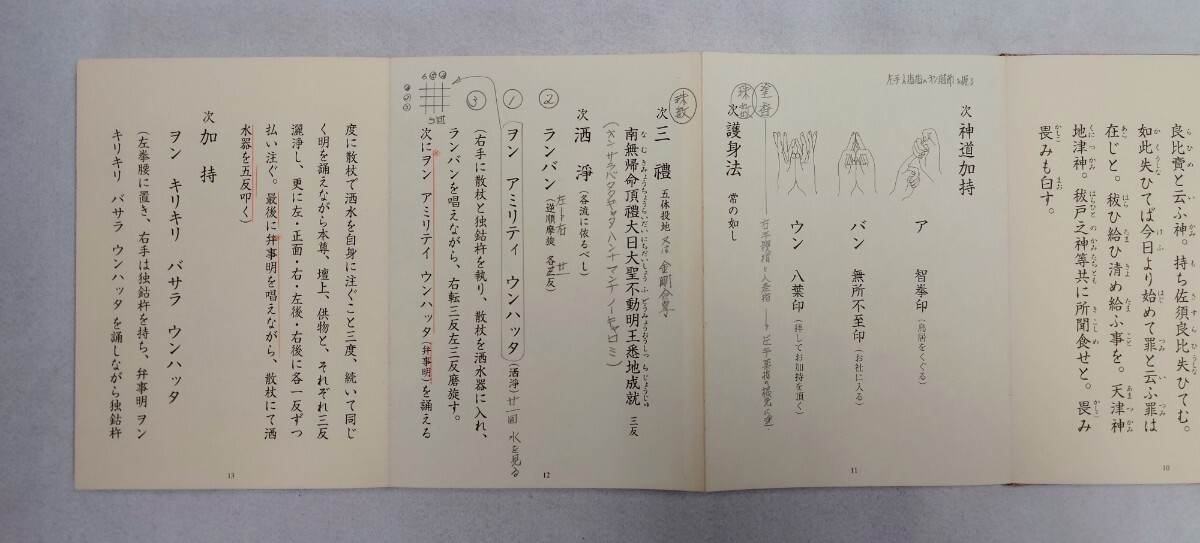 良比賣と云ふ神。持ち佐須良比失ひてむ。
如此失ひてば今日より始めて罪と云ふ罪は
在じと。祓ひ給ひ清め給ふ事を。天津神
地津神。祓戸之神等共に所聞食せと。畏み
畏みも白す。
10
次 神道加持
ア 智拳印（鳥居をくぐる）
バン 無所不至印（お社に入る）
ウン 八葉印（拝してお加持を頂く）
塗香
珠数
次 護身法 常の如し
11
珠数
次 三禮 五体投地 又は 金剛合掌
南無帰命頂禮大日大聖不動明王悉地成就 三反
次 洒淨（各流に依るべし）
② ランバン（逆順摩旋 各三反）
左ト右 廿一
① ヲン アミリティ ウンハッタ（洒淨）廿一回 水を見る
（右手に散杖と独鈷杵を執り、散杖を洒水器に入れ、
③ ランバンを唱えながら、右転三反左三反磨旋す。
次にヲン アミリテイ ウンハッタ（弁事明）を誦える
12
度に散杖で洒水を自身に注ぐこと三度、続いて同じ
く明を誦えながら本尊、壇上、供物と、それぞれ三反
灑淨し、更に左・正面・右・左後・右後に各一反ずつ
払い注ぐ。最後に弁事明を唱えながら、散杖にて洒
水器を五反叩く）
次 加持
ヲン キリキリ バサラ ウンハッタ
（左拳腰に置き、右手は独鈷杵を持ち、弁事明 ヲン
キリキリ バサラ ウンハッタ を誦しながら独鈷杵
13